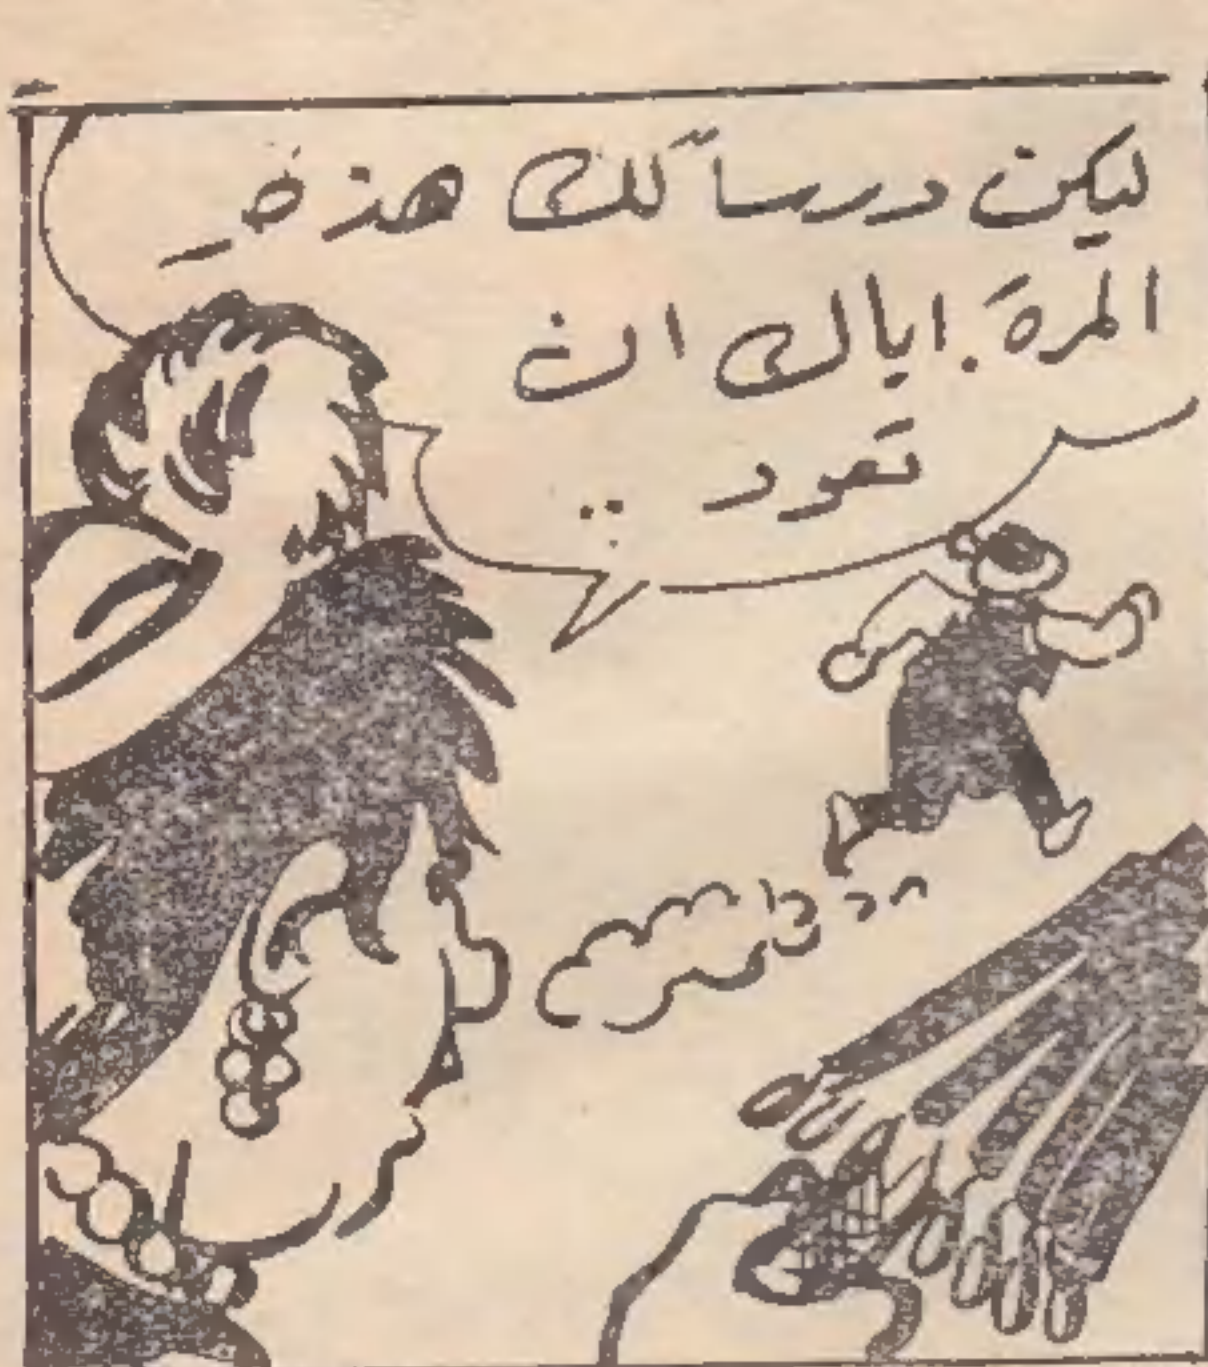 ليكن درساً لك هذهِ
المرة . اياك ان
تعود ..